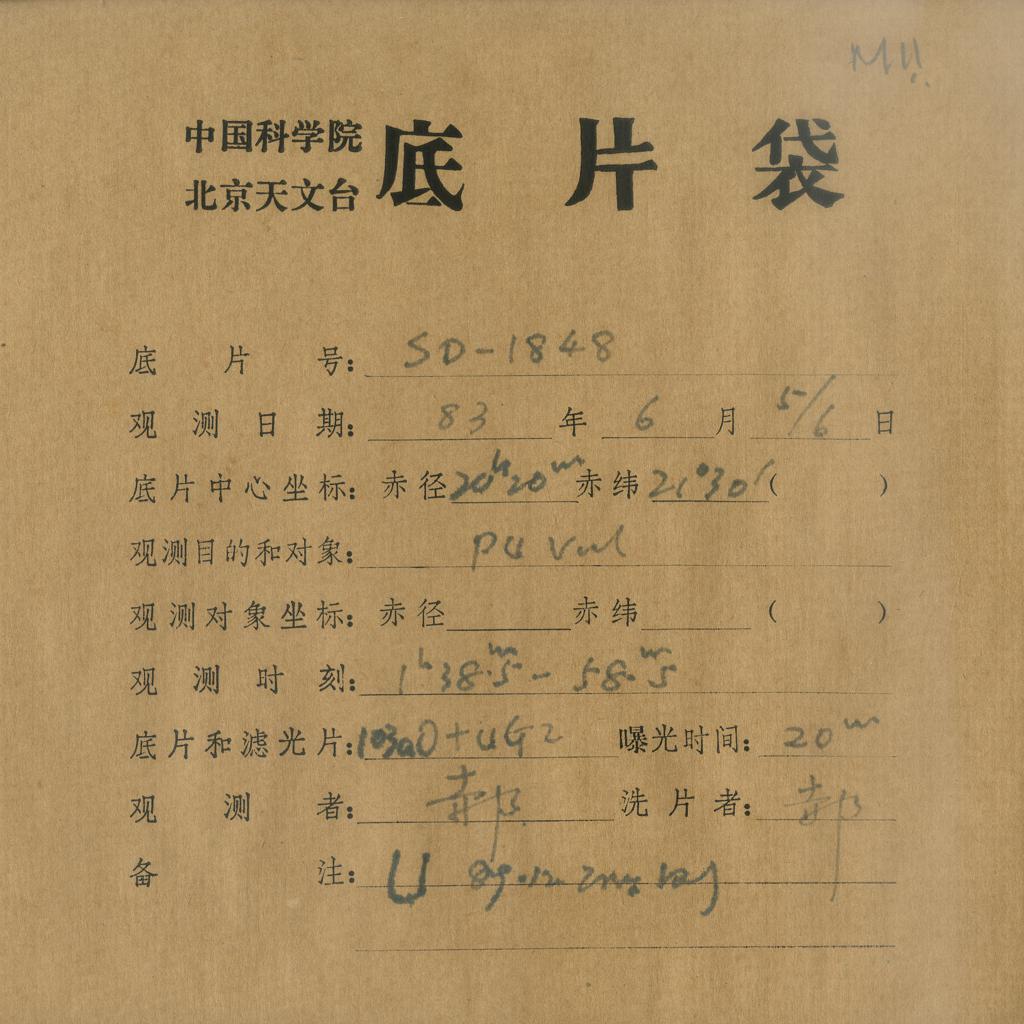 M11
中国科学院
北京天文台
底片袋
底片号: SD-1848
观测日期: 83年6月5/6日
底片中心坐标: 赤径20h20m赤纬21°30′( )
观测目的和对象: PU Vul
观测对象坐标: 赤径 赤纬 ( )
观测时刻: 1h38.m5-58.m5
底片和滤光片: 103aO+UG2 曝光时间: 20m
观测者: 郝 洗片者: 郝
备注: U